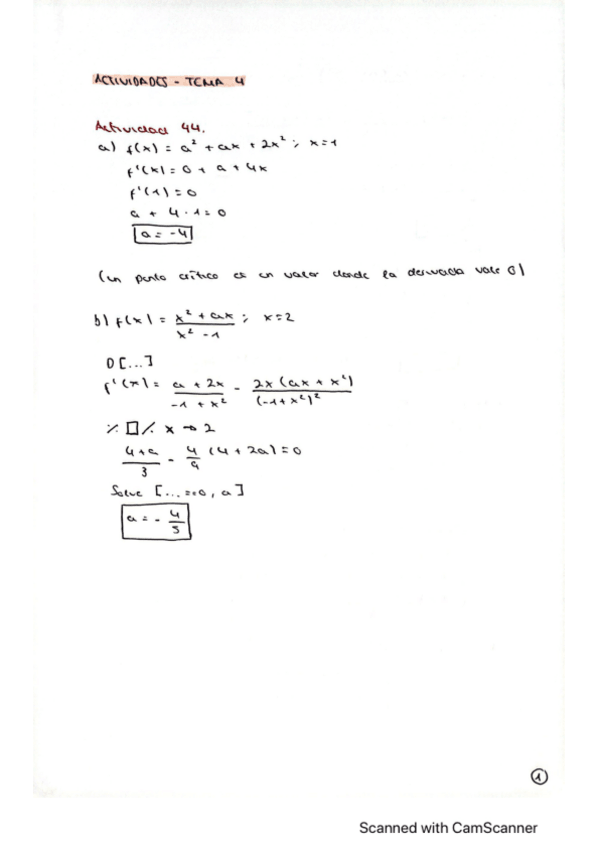 ACTIVIDADES - TEMA 4
Actividad 44.
a) f(x) = a² + ax + 2x² ; x=1
f'(x) = 0 + a + 4x
f'(1) = 0
a + 4 · 1 = 0
a = -4
(un punto crítico es un valor donde la derivada vale 0)
b) f(x) = (x² + ax)/(x² - 1) ; x=2
D[...]
f'(x) = (a + 2x)/(-1 + x²) - (2x(ax + x²))/(-1 + x²)²
%□/. x → 2
(4+a)/3 - 4/9 (4 + 2a) = 0
Solve [... ==0, a]
a = - 4/5
1
Scanned with CamScanner